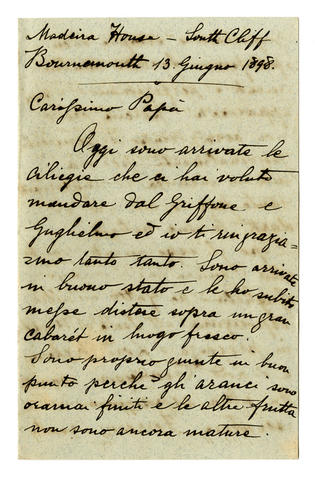 Madeira House – South Cliff
Bournemouth 13 Giugno 1898.
Carissimo Papà
Oggi sono arrivate le
ciliegie che ci hai voluto
mandare dal Griffone e
Guglielmo ed io ti ringrazia=
amo tanto tanto. Sono arrivate
in buono stato e le ho subito
messe distese sopra un gran
cabarét in luogo fresco.
Sono proprio giunte in buon
punto perchè gli aranci sono
oramai finiti e le altre frutta
non sono ancora mature.